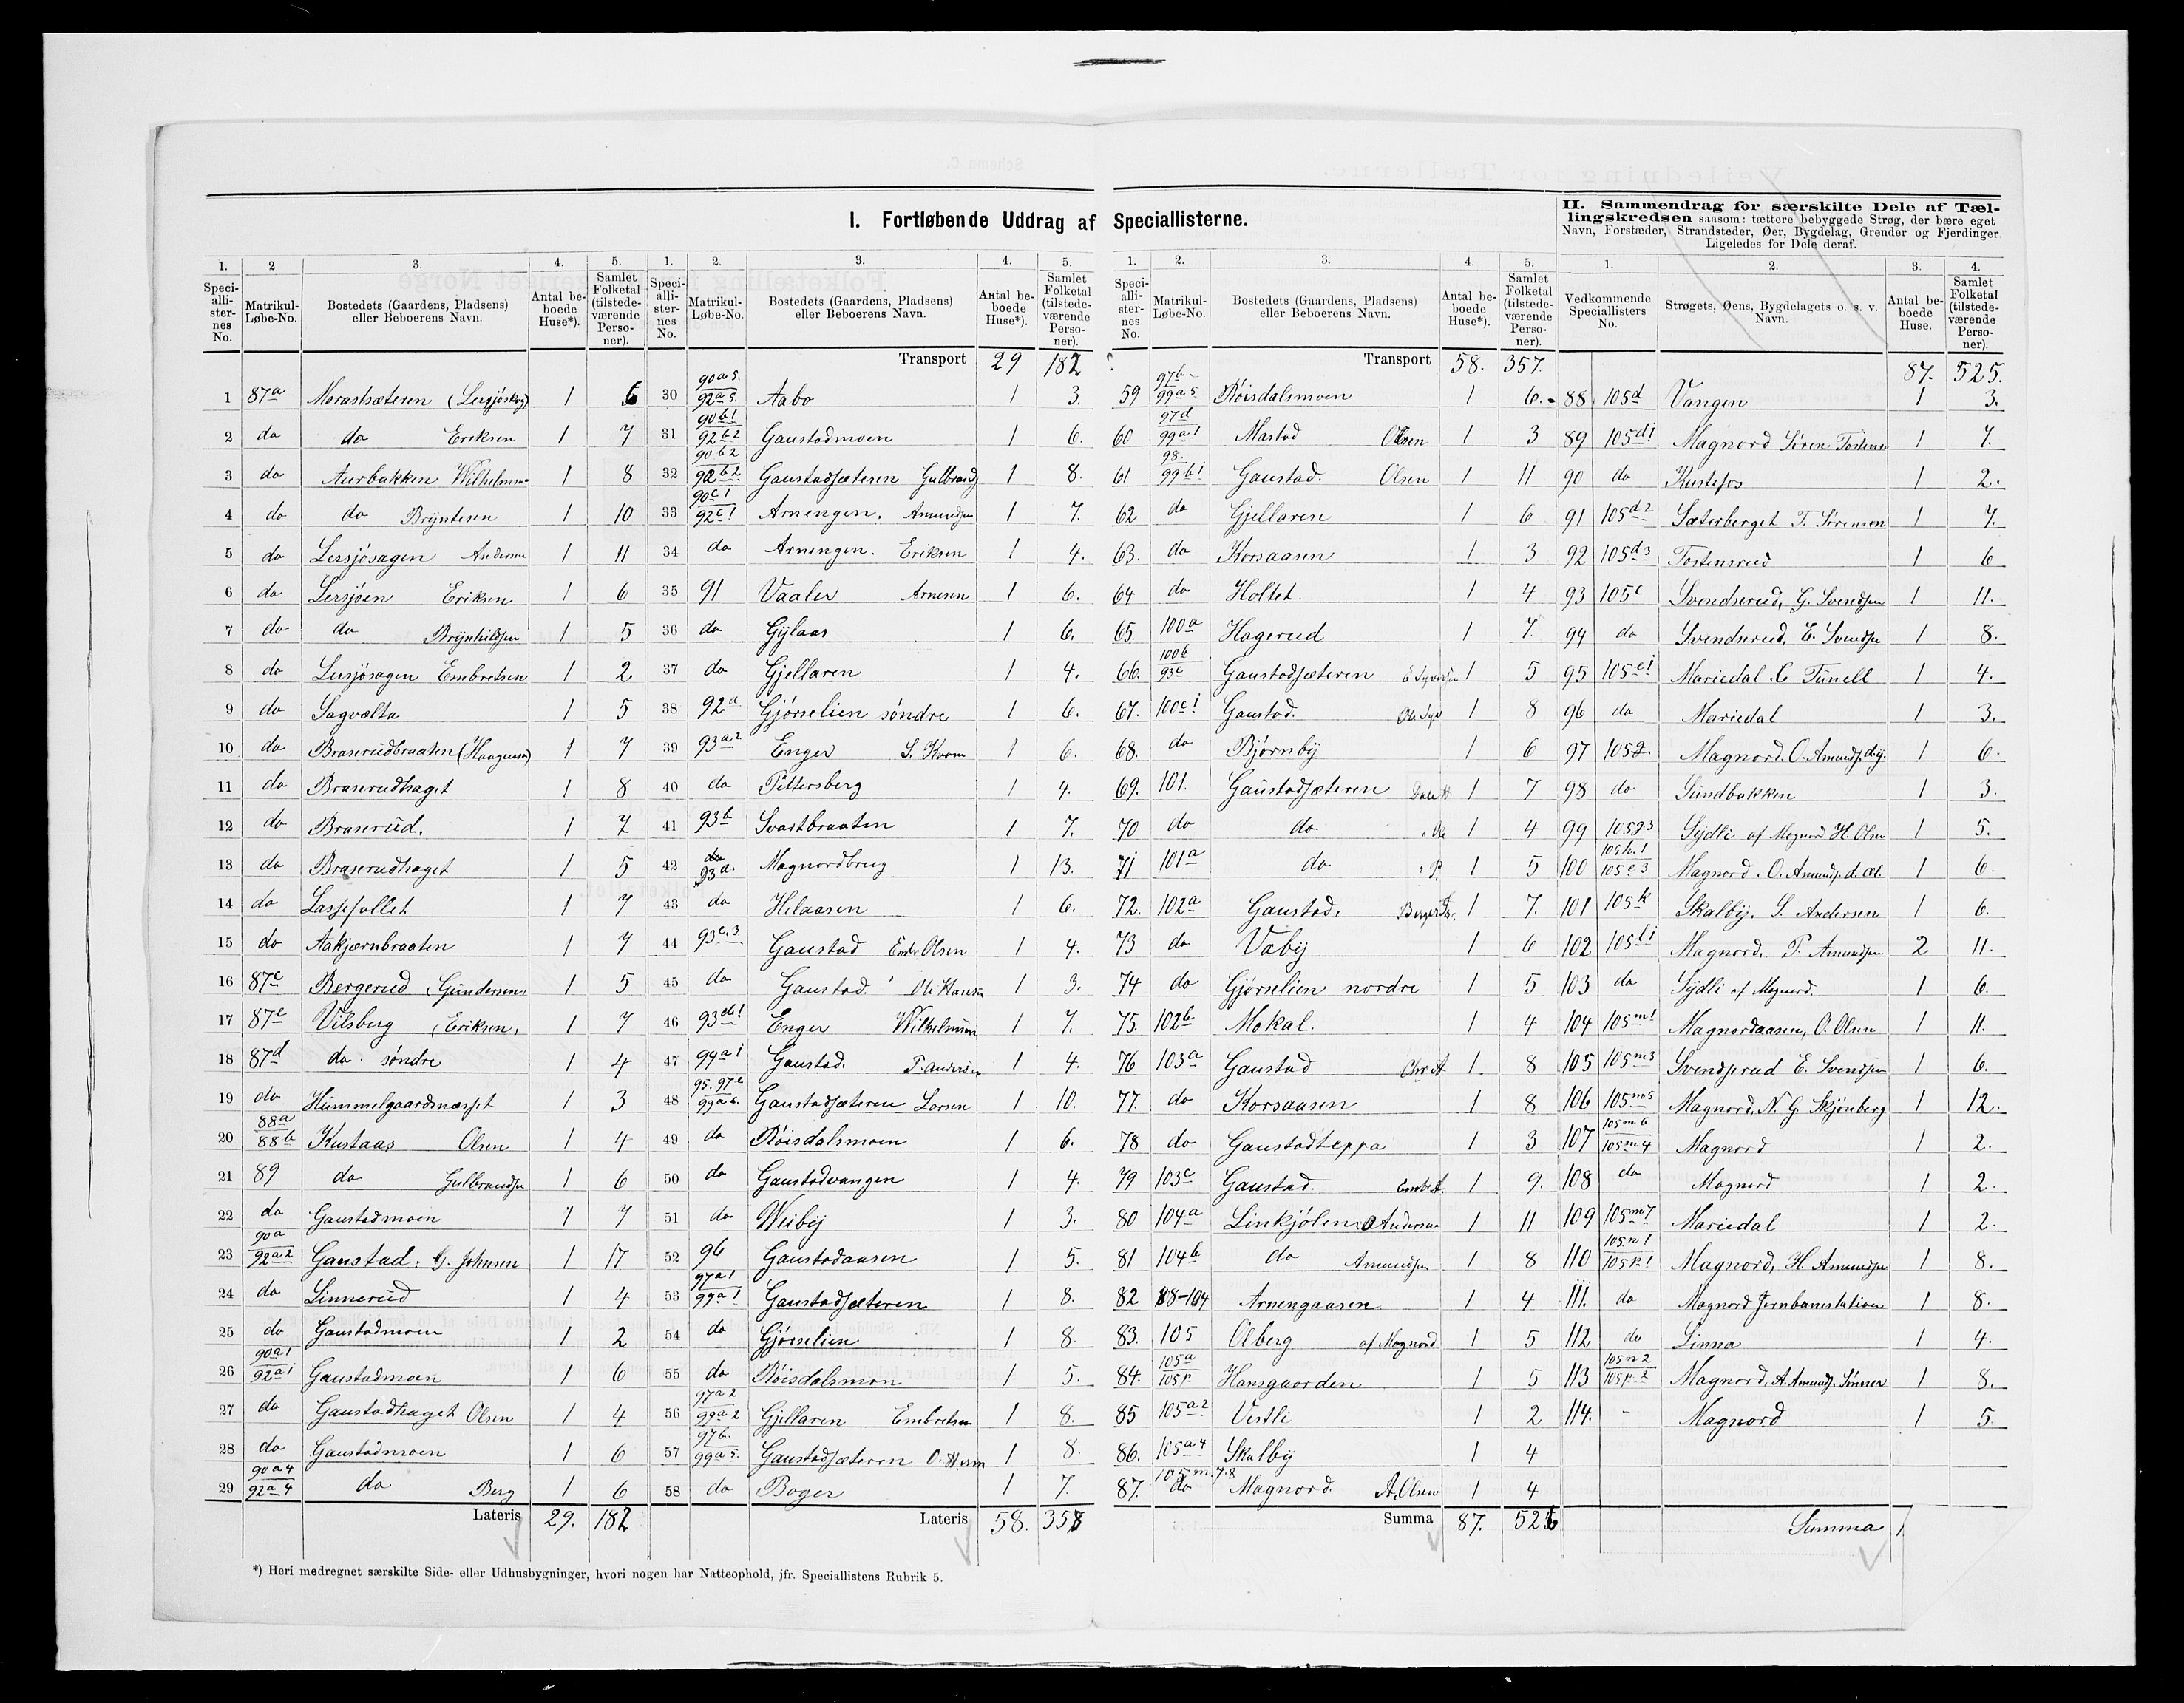 I. Fortløbende Uddrag af Speciallisterne.
II. Sammendrag for særskilte Dele af Tællingskredsen saasom: tættere bebyggede Strøg, der bære eget
Navn, Forstæder, Strandsteder, Øer, Bygdelag, Grender og Fjerdinger.
Ligeledes for Dele deraf.
1. 2 3. 4. 5. 1. 2. 3. 4. 5. 1. 2. 3. 4. 5. 1. 2. 3. 4.
Speciallisternes No. Matrikul-Løbe-No. Bostedets (Gaardens, Pladsen) eller Beboerens Navn. Antal beboede Huse*). Samlet Folketal (tilstedeværende Personer).
Speciallisternes No. Matrikul-Løbe-No. Bostedets (Gaardens, Pladsen) eller Beboerens Navn. Antal beboede Huse*). Samlet Folketal (tilstedeværende Personer).
Speciallisternes No. Matrikul-Løbe-No. Bostedets (Gaardens, Pladsen) eller Beboerens Navn. Antal beboede Huse*). Samlet Folketal (tilstedeværende Personer).
Vedkommende Speciallisters No. Strøgets, Øens, Bygdelagets o. s. v. Navn. Antal beboede Huse. Samlet Folketal (tilstedeværende Personer).
1 87a Morastsæteren 1 6
2 do do Eriksen 1 7
3 do Aurbakken Wilhelmsen 1 8
4 do do Bryntesen 1 10
5 do Lersjøsagen Andersen 1 11
6 do Lersjøen Eriksen 1 6
7 do do Brynhildsen 1 5
8 do Lersjøsagen Embretsen 1 2
9 do Sagvælta 1 5
10 do Braserudbraaten (Haagensen) 1 7
11 do Braserudhaget 1 8
12 do Braserud. 1 7
13 do Braserudhaget 1 5
14 do Lassefallet 1 7
15 do Aakjærnbraaten 1 7
16 87c Bergerud (Gundersen 1 5
17 87e Vilsberg (Eriksen, 1 7
18 87d do. søndre 1 4
19 do Hummelgaardsnæsset 1 3
20 88a 88b Kustaas Olsen 1 4
21 89 do Gulbrandsen 1 6
22 do Gaustadmoen 1 7
23 90a 92a2 Gaustad. G. Johnsen 1 17
24 do Linnerud 1 4
25 do Gaustadmoen 1 2
26 90a1 92a1 Gaustadmoen 1 6
27 do Gaustadhaget Olsen 1 4
28 do Gaustadmoen 1 6
29 90a4 92a4 do Berg 1 6
Lateris 29. 182
Transport 29 182
30 90a5. 92a5. Aabo 1 3.
31 90b1 92b2 Gaustadmoen 1 6.
32 90b2 92b2 Gaustadsæteren Gulbrands 1 8.
33 90c1 92c1 Arnengen. Amundsen 1 7.
34 do Arnengen. Eriksen 1 4.
35 91 Vaaler Arnesen 1 6.
36 do Gylaas 1 6.
37 do Gjellaren 1 4.
38 92a Gjørselien søndre 1 6.
39 93a2 Enger 1 6.
40 do Pettersberg 1 4.
41 93b Svartbraaten 1 7.
42 93d. Magnordbrug 1 13.
43 do Helaasen 1 6.
44 93c.3. Gaustad Emb. Olsen 1 4.
45 do Gaustad. Ole Hansen 1 3.
46 93d1 Enger Wilhelmsen 1 7.
47 94a1 Gaustad. P. Andersen 1 4.
48 95. 97c 99a6. Gaustadsæteren Larsen 1 10.
49 do Røisdalsmoen 1 6.
50 do Gaustadvangen 1 4.
51 do Weiby 1 3.
52 96 Gaustadaasen 1 5.
53 97a1 99a1 Gaustadsæteren 1 8.
54 do Gjørselien 1 8.
55 do Røisdalsmon 1 5.
56 97a2 99a2 Gjellaren Embretsen 1 8.
57 97b. 99a5. Gaustadsæteren 1 8.
58 do Boger 1 7.
Lateris 58. 357
Transport 58. 357.
59 97b 99a5 Røisdalsmoen 1 6.
60 97d 99a1 Mastad Olsen 1 3
61 98. 99b1 Gaustad. Olsen 1 11
62 do Gjellaren 1 6
63. do Korsaasen 1 3
64 do Holtet. 1 4
65. 100a Hagerud 1 7.
66. 100b 93c Gaustadsæteren 1 5
67. 100c1 Gaustad. Ole Syv 1 8
68. do Bjørnby 1 6
69. 101. Gaustadsæteren 1 7
70 do do 1 4
71 101a do 1 5
72. 102a Gaustad. 1 7.
73 do Vaby 1 6
74 do Gjørselien nordre 1 5
75. 102b Mokal. 1 4
76 103a Gaustad Chr. A 1 8
77. do Korsaasen 1 8
78 do Gaustadteppa 1 3
79 103c Gaustad. 1 9.
80 104a Linkjølen Andersen 1 11
81 104b do Amundsen 1 8
82 88-104 Arnengaasen 1 4
83. 105 Olberg af Magnord 1 5
84. 105a 105p Hansgaarden 1 5
85 105a2 Vestli 1 2
86. 105a4 Skalby 1 4
87. 105m.7.8 do Magnord. A. Olsen 1 4
Summa 87. 525
87. 525.
88 105d Vangen 1 3.
89 105d1 Magnord Søren Tostens 1 7.
90 do Kustefos 1 2.
91 105d2 Sæterberget T. Sørensen 1 7.
92 105d3 Tostensrud 1 6
93 105e Svendserud, G. Svendsen 1 11.
94 do Svendserud, E. Svendsen 1 8.
95 105e1 Mariedal. C Tunell 1 4.
96 do Mariedal 1 3.
97 105g Magnord. O. Amunds. d.y. 1 6.
98 do Sundbakken 1 3.
99 105g3 Sydli af Magnord H. Olsen 1 5.
100 105h.1 105e3 Magnord. O. Amunds. d. æl. 1 6.
101 105k Skalby. S. Andersen 1 6.
102 105l1 Magnord. P. Amundsen 2 11.
103 do Sydli af Magnord. 1 6.
104 105m1 Magnordaasen, O. Olsen 1 11.
105 105m3 Svendserud E. Svendsen 1 6.
106 105m5 Magnord, N. G. Skjønberg 1 12.
107 105m6 105m4 Magnord 1 2.
108 do Magnord 1 2.
109 105m7 Mariedal 1 2.
110 105n1 105p1 Magnord, H. Amundsen 1 8.
111. do Magnord Jernbanestation 1 8.
112 do Linna 1 4.
113 105n2 105p.2 Magnord, A. Amunds. Sønnen 1 8.
114. - Magnord 1 5.
Summa
*) Heri medregnet særskilte Side- eller Udhusbygninger, hvori nogen har Natteophold, jfr. Speciallistens Rubrik 5.